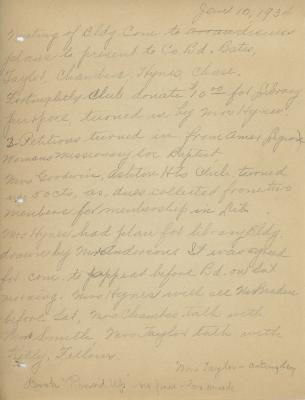 Jan 10, 1934
Meeting of Bldg. Com to discuss
plans to present to Co Bd. Bates,
Taylor, Chambers, Hynes, Chase.
Fortnightly Club donate $10.00 for library
purpose, turned in by Mrs Hynes.
2 Petitions turned in from Amer Legion
Womans Missionary Soc Baptist.
Mrs Goodwin, Ashton Hts Club turned
in 50 cts, as dues collected from two
members for membership in Lib.
Mrs Hynes had plan for library Bldg.
drawn by Mr Anderson. It was agreed
for com. to appear before Bd. on Sat
morning. Mrs Hynes will see Mr
before Sat, Mrs Chambers talk with
Smith, Mrs Taylor talk with
Kelly, Fellows.
Mrs Taylor -
Book "Round Up" -